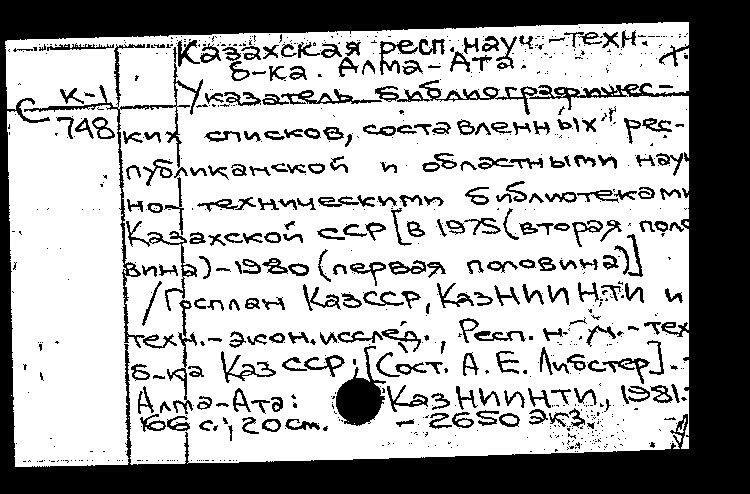 Казахская респ. науч.-техн.
б-ка. Алма-Ата. т.
С К-1
748
Указатель библиографичес-
ких списков, составленных рес-
публиканской и областными науч
но-техническими библиотеками
Казахской ССР [в 1975 (вторая поло
вина)-1980 (первая половина)]
/Госплан КазССР, КазНИИНТИ и
техн.-экон.исслед., Респ. н
б-ка КазССР; [Сост. А. Е. Либстер].
Алма-Ата: КазНИИНТИ, 1981.
166 с.; 20 см. - 2650 экз.